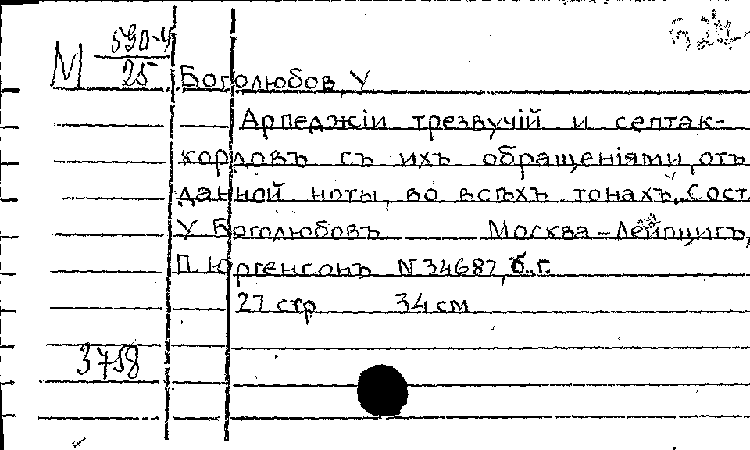 М 590-4
25
Боголюбов, У
Арпеджіи трезвучій и септак-
кордовъ съ ихъ обращеніями, отъ
данной ноты, во всѣхъ тонахъ. Сост.
У Боголюбовъ Москва-Лейпцигъ,
П. Юргенсонъ N 34687, б. г.
27 стр 34 см
3758